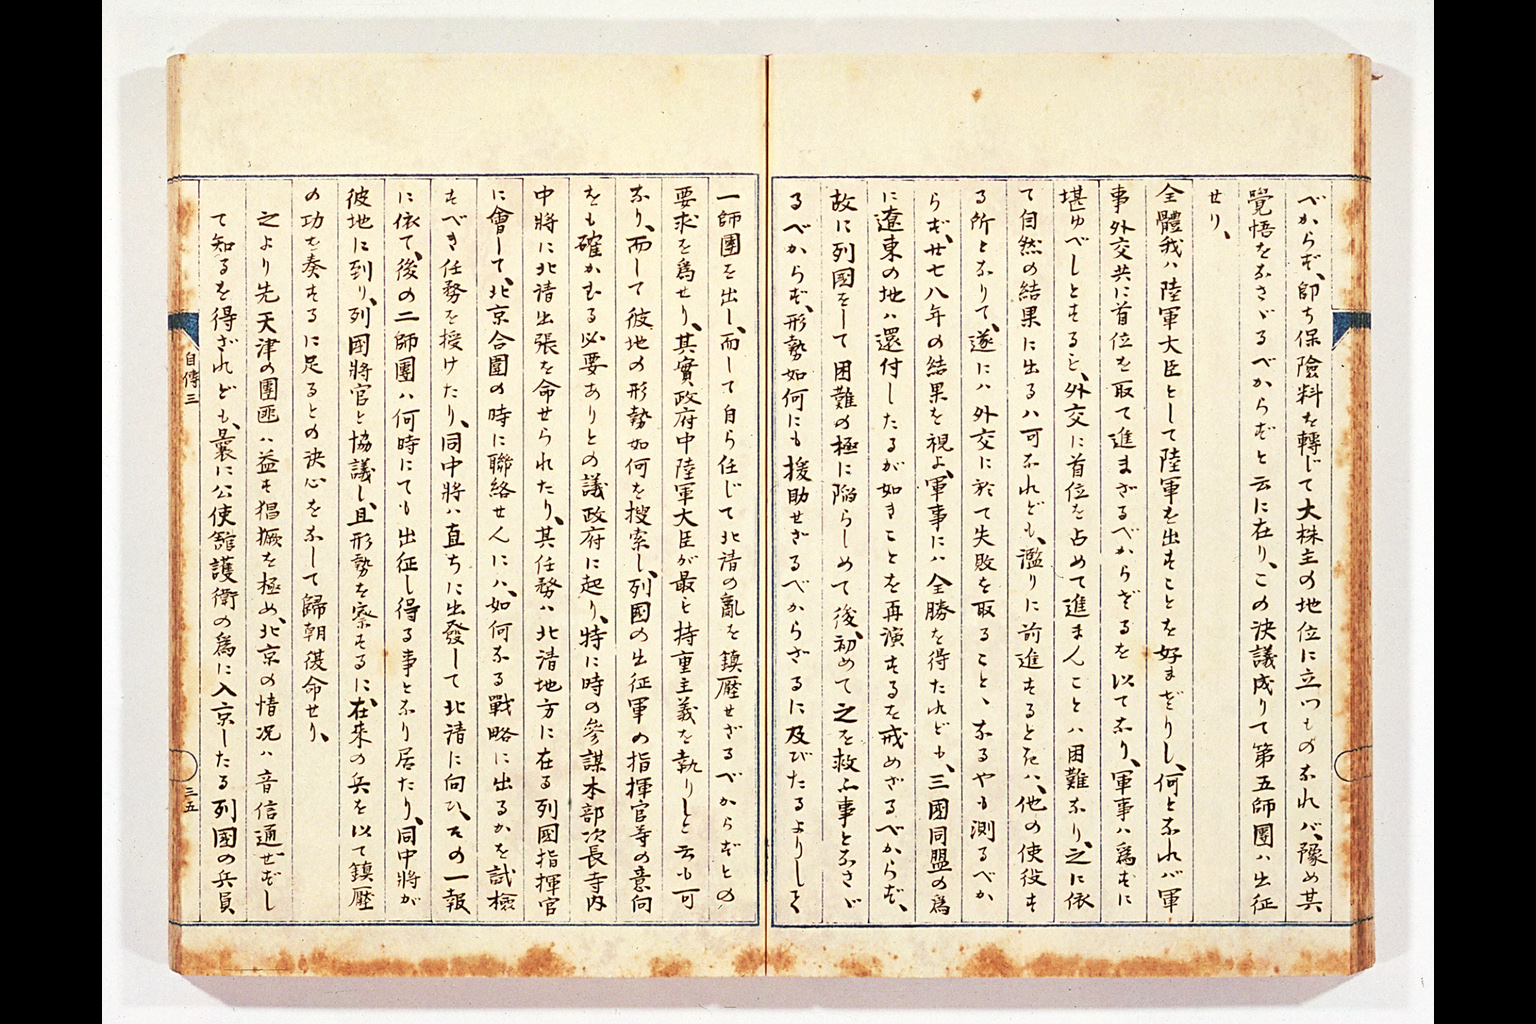 べからず、卽ち保險料を轉じて大株主の地位に立つものなれバ、豫め其
覺悟をなさゞるべからずと云に在り、この決議成りて第五師團ハ出征
せり、
全體我ハ陸軍大臣として陸軍を出すことを好まざりし、何となれバ軍
事外交共に首位を取て進まざるべからざるを以てなり、軍事ハ爲すに
堪ゆべしとするも、外交に首位を占めて進まんことハ困難なり、之に依
て自然の結果に出るハ可なれども、濫りに前進するときハ、他の使役す
る所となりて、遂にハ外交に於て失敗を取ること、なるやも測るべか
らず、廿七八年の結果を視よ、軍事にハ全勝を得たれども、三國同盟の爲
に遼東の地ハ還付したるが如きことを再演するを戒めざるべからず、
故に列國をして困難の極に陷らしめて後、初めて之を救ふ事となさゞ
るべからず、形勢如何にも援助せざるべからざるに及びたるよりして
一師團を出し、而して自ら任じて北淸の亂を鎭壓せざるべからずとの
要求を爲せり、其實政府中陸軍大臣が最も持重主義を執りしと云も可
なり、而して彼地の形勢如何を搜索し、列國の出征軍の指揮官等の意向
をも確かむる必要ありとの議政府に起り、特に時の參謀本部次長寺內
中將に北淸出張を命せられたり、其任務ハ北淸地方に在る列國指揮官
に會して、北京合圍の時に聯絡せんにハ、如何なる戰略に出るかを試檢
すべき任務を授けたり、同中將ハ直ちに出發して北淸に向ひ、その一報
に依て、後の二師團ハ何時にても出征し得る事となり居たり、同中將が
彼地に到り、列國將官と協議し、且形勢を察するに、在來の兵を以て鎭壓
の功を奏するに足るとの決心をなして歸朝復命せり、
之より先天津の團匪ハ益す猖獗を極め、北京の情況ハ音信通ぜずし
て知るを得ざれども、曩に公使館護衛の爲に入京したる列國の兵員
自傳三
三五